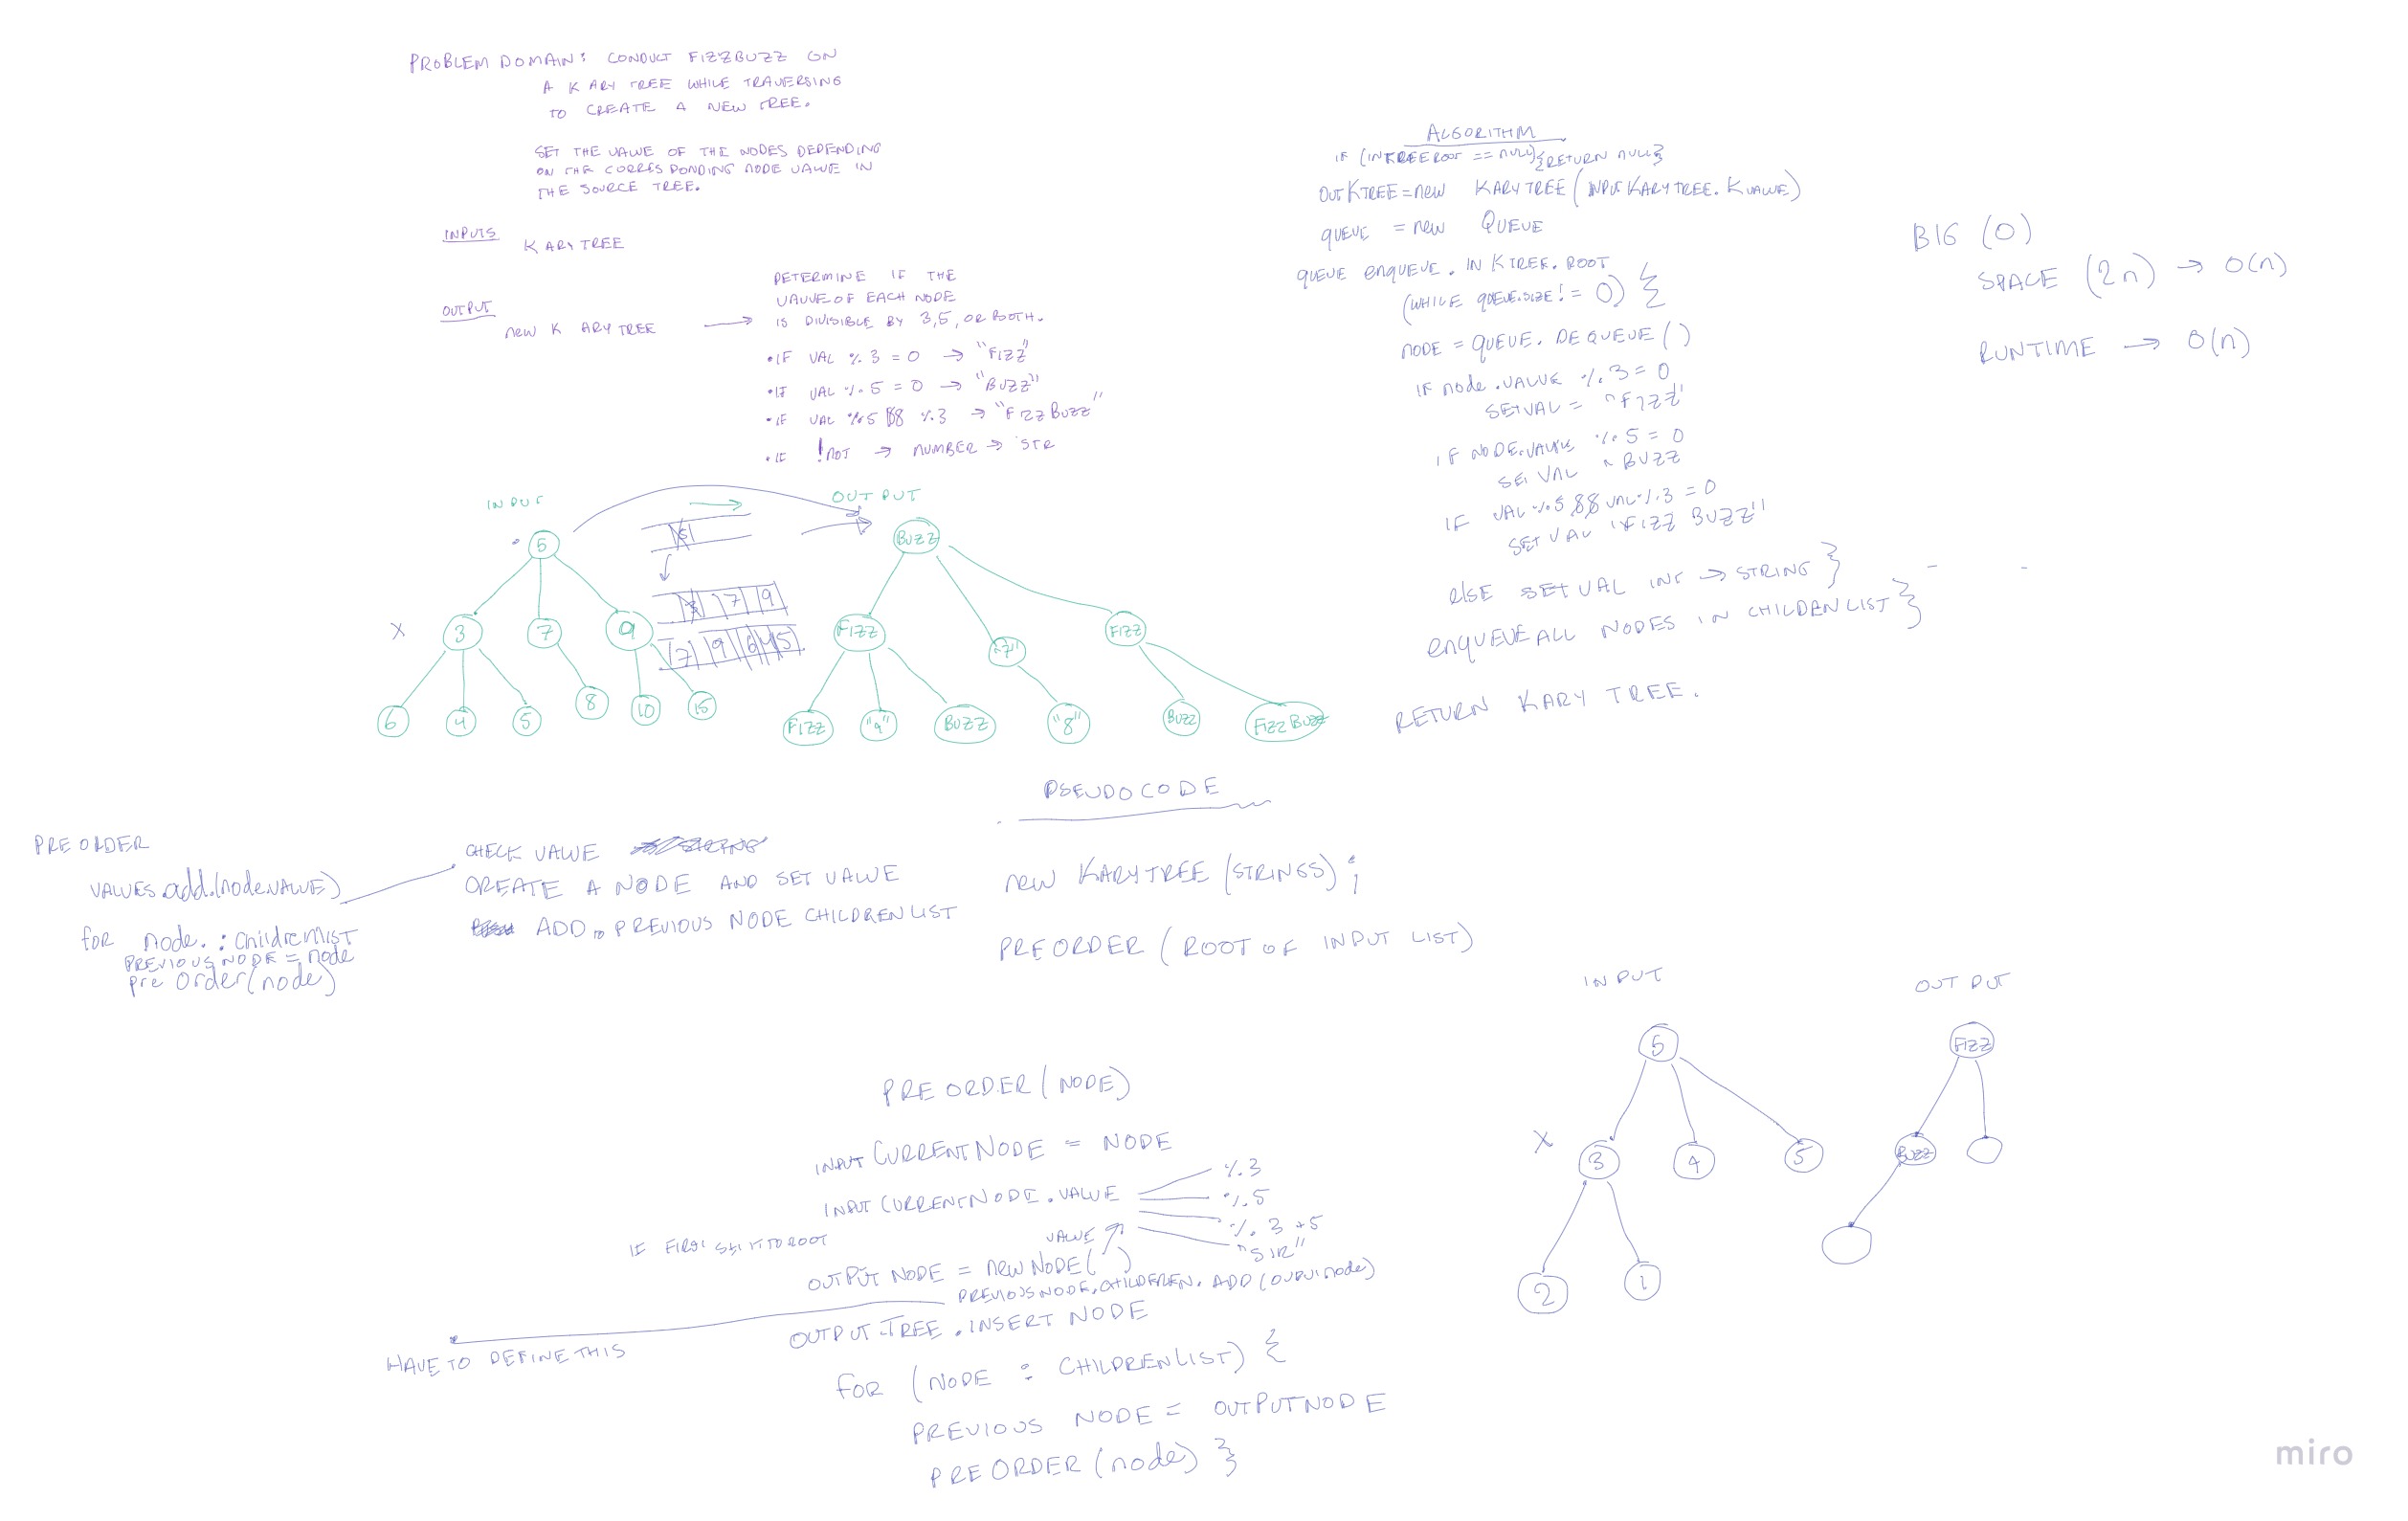 PROBLEM DOMAIN: CONDUCT FIZZBUZZ ON
A K ARY TREE WHILE TRAVERSING
TO CREATE A NEW TREE.
SET THE VALUE OF THE NODES DEPENDING
ON THE CORRESPONDING NODE VALUE IN
THE SOURCE TREE.
INPUTS
K ARY TREE
OUTPUT
new K ARY TREE
DETERMINE IF THE
VALUE OF EACH NODE
IS DIVISIBLE BY 3,5, OR BOTH.
• IF VAL % 3 = 0 → "FIZZ"
• IF VAL % 5 = 0 → "BUZZ"
• IF VAL % 5 && % 3 → "FIZZ BUZZ"
• IF ! NOT → NUMBER → STR
INPUT
5
3 7 9
6 4 5 8 10 15
5
3 7 9
7 9 6 4 5
OUTPUT
BUZZ
FIZZ "7" FIZZ
FIZZ "4" BUZZ "8" BUZZ FIZZ BUZZ
ALGORITHM
IF (INTREEROOT == NULL) {RETURN NULL}
OUTKTREE = new KARYTREE (INPUTKARYTREE. KVALUE)
QUEUE = new QUEUE
QUEUE enqueue . IN KTREE. ROOT
(WHILE QUEUE.SIZE != 0) {
NODE = QUEUE. DEQUEUE ()
IF node .VALUE % 3 = 0
SETVAL = "FIZZ"
IF NODE.VALUE % 5 = 0
SET VAL "BUZZ
IF VAL % 5 && VAL % 3 = 0
SET VAL "FIZZ BUZZ"
ELSE SET VAL INT → STRING }
enqueue ALL NODES IN CHILDREN LIST }
RETURN KARY TREE.
BIG (O)
SPACE (2n) → O(n)
RUNTIME → O(n)
PRE ORDER
VALUES.add.(node.VALUE)
for node. : childrenlist
PREVIOUS NODE = node
pre Order(node)
CHECK VALUE
CREATE A NODE AND SET VALUE
ADD TO PREVIOUS NODE CHILDREN LIST
PSEUDO CODE
new KARYTREE (STRINGS) ;
PREORDER (ROOT OF INPUT LIST)
PRE ORDER (NODE)
INPUT CURRENT NODE = NODE
INPUT CURRENT NODE . VALUE
% 3
% 5
% 3 +5
"STR"
VALUE
IF FIRST SET IT TO ROOT
OUTPUT NODE = new NODE ( )
PREVIOUS NODE. CHILDEREN. ADD (OUTPUT node)
OUTPUT TREE . INSERT NODE
HAVE TO DEFINE THIS
FOR (NODE : CHILDREN LIST) {
PREVIOUS NODE = OUTPUT NODE
PRE ORDER (node) }
INPUT
5
3 4 5
2 1
OUTPUT
FIZZ
BUZZ
X
X
miro